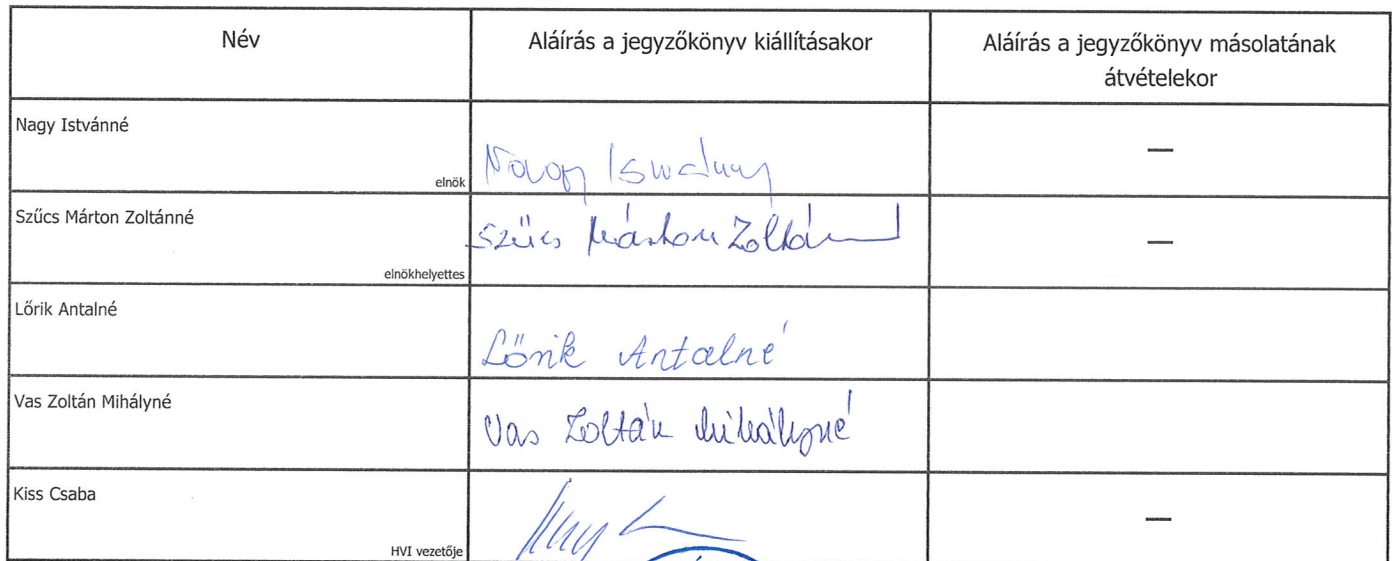 Név
Aláírás a jegyzőkönyv kiállításakor
Aláírás a jegyzőkönyv másolatának
átvételekor
Nagy Istvánné
elnök
Nagy
—
Szűcs Márton Zoltánné
elnökhelyettes
Szűcs Márton Zoltánné
—
Lőrik Antalné
Lőrik Antalné
Vas Zoltán Mihályné
Vas Zoltán Mihályné
Kiss Csaba
HVI vezetője
—